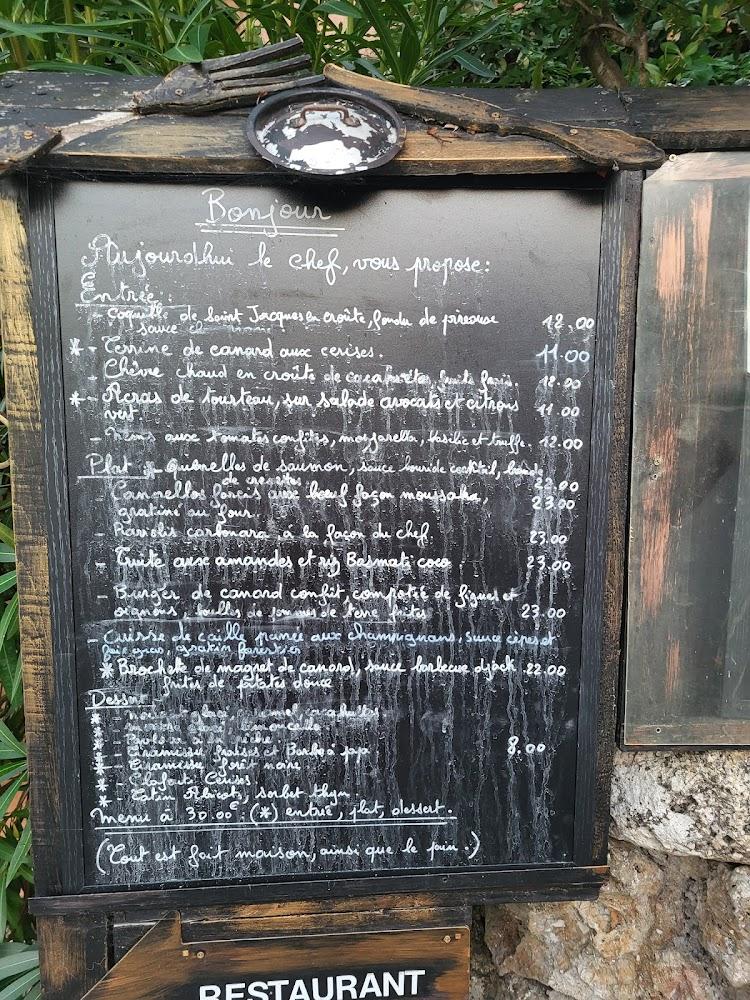 Bonjour
Aujourdhui le chef, vous propose:
Entrée:
- Coquille de Saint Jacques en croûte, fondu de
sauce 12,00
* - Terrine de canard aux cerises. 11.00
- Chèvre chaud en croûte de cacahuètes, fruits 12.00
* - Acras de tourteau, sur salade avocats et citrons
vert. 11.00
- aux tomates confites, mozzarella, basilic et truffe. 12.00
Plat: * - Quenelles de saumon, sauce cocktail,
de crevettes 22.00
- Cannellos farcis aux bœuf façon moussaka, 23.00
gratiné au four.
- Raviolis carbonara, à la façon du chef. 23.00
- Truite aux amandes et riz Basmati coco 23.00
- Burger de canard confit, compotée de figues et
oignons, de terre frites 23.00
- Cuisse de caille panée aux champignons, sauce cèpes et
foie gras, gratin forestier
* Brochette de magret de canard, sauce barbecue 22.00
frites de patates douce
Dessert
* -
* -
* -
* - Tiramissu fraises et Barbe à papa 8,00
* - Tiramissu forêt noire
* - Clafouti Cerises
* - Tatin Abricots, sorbet thym
Menu à 30.00€ (*) entrée, plat, dessert.
(Tout est fait maison, ainsi que le pain.)
RESTAURANT